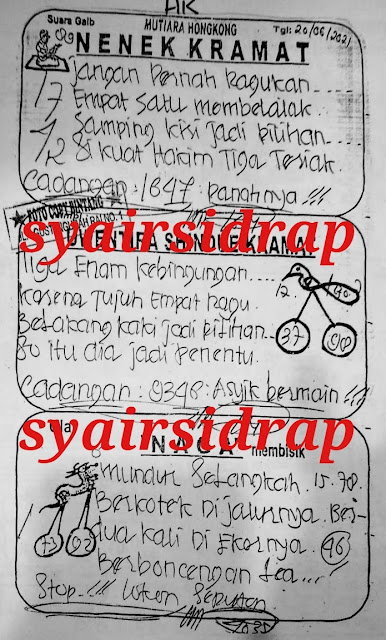 HK
Suara Gaib
MUTIARA HONGKONG
Tgl: 20/06/2021
NENEK KRAMAT
Jangan Pernah Ragukan
17 Empat Satu Membelalak.
Samping Kisi Jadi Pilihan
12 Si Kuat Hakim Tiga Teriak.
Cadangan: 1847: Ranahnya !!!
TOTO COPY BINTANG
syairsidrap
Tiga Enam Kebingungan
Karena Tujuh Empat Ragu.
12
Belakang Kaki Jadi Pilihan.
37
80 itu dia Jadi Penentu.
Cadangan: 9348: Asyik Bermain !!!
syairsidrap
NAGA membisik
Mundur Selangkah. 15.78.
Berkotek Di Jalurnya. Ber-
dua kali Di Ekornya. 96
73 93
Berboncengan
Stop !!!